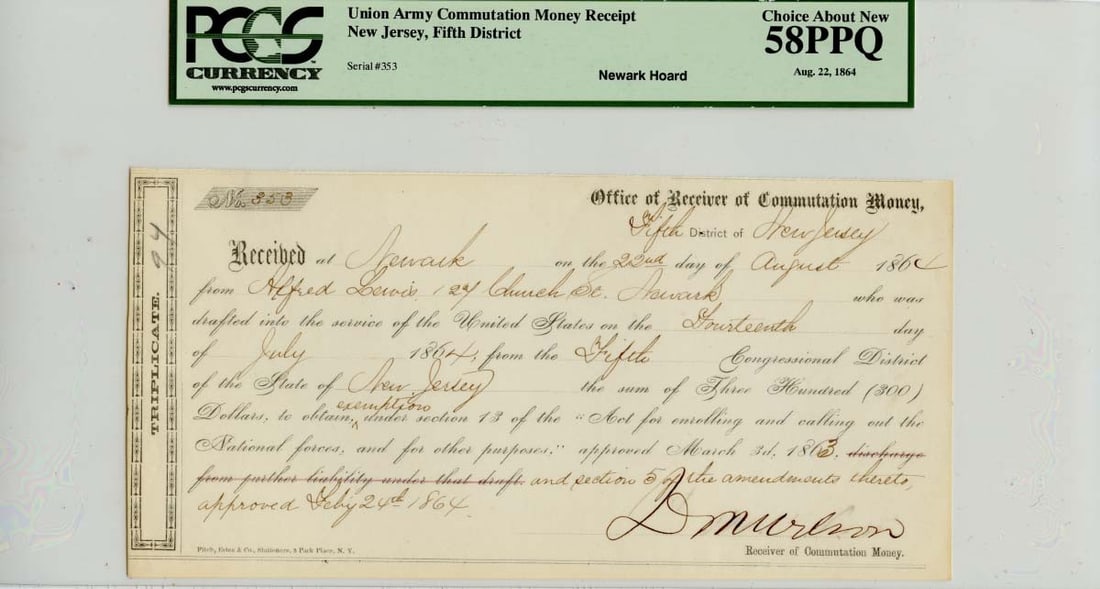 PCGS
CURRENCY
www.pcgscurrency.com
Union Army Commutation Money Receipt
New Jersey, Fifth District
Serial #353
Newark Hoard
Choice About New
58PPQ
Aug. 22, 1864
TRIPLICATE.
94
No. 353
Office of Receiver of Commutation Money,
Fifth District of New Jersey
Received at Newark on the 22nd day of August 1864
from Alfred Lewis, 127 Church St. Newark who was
drafted into the service of the United States on the Fourteenth day
of July 1864, from the Fifth Congressional District
of the State of New Jersey the sum of Three Hundred (300)
exemption
Dollars, to obtain, under section 13 of the "Act for enrolling and calling out the
National forces, and for other purposes;" approved March 3d, 1863. discharge
from further liability under that draft. and section 5 of the amendments thereto,
approved Feby 24th 1864.
D M Wilson
Pitch, Estee & Co., Stationers, 3 Park Place, N. Y.
Receiver of Commutation Money.